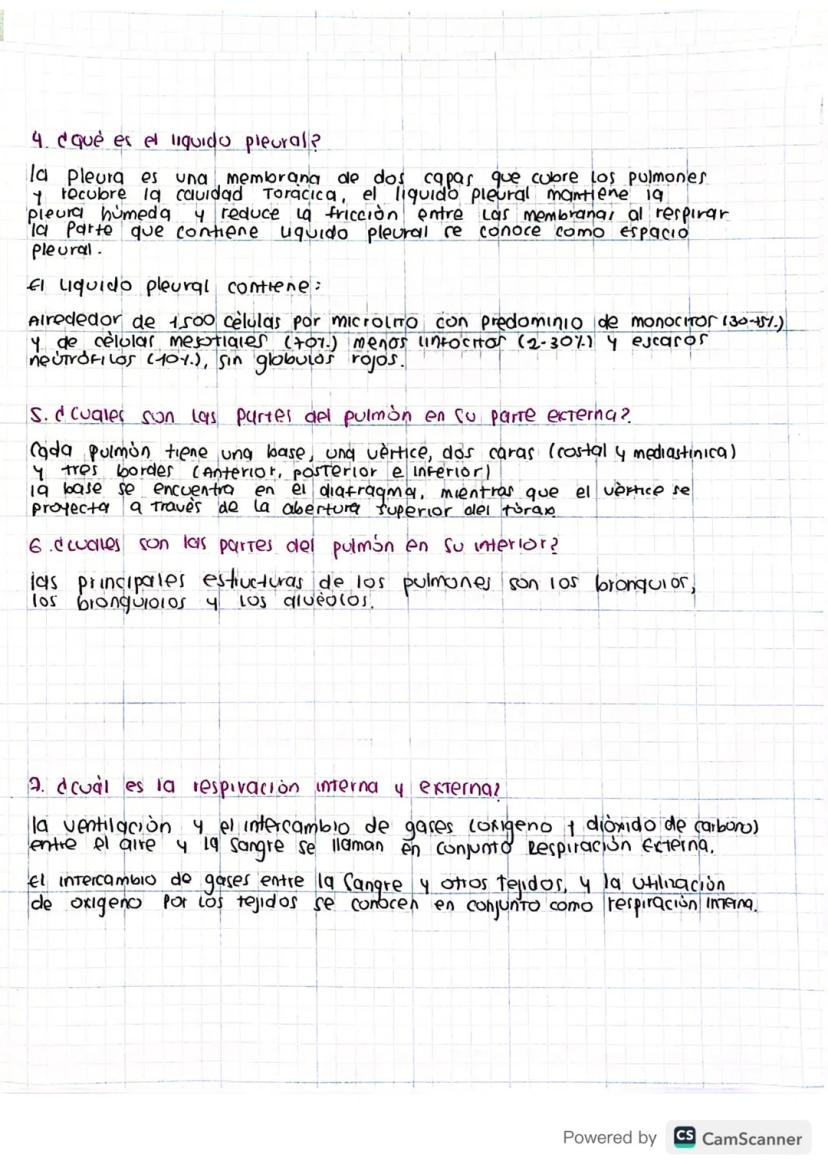 4. ¿què es el liquido pleural?
la pleura es una membrana de dos capas que cubre los pulmones
y recubre la cavidad Toràcica, el liquido pleural mantiene la
pleura hùmeda y reduce la fricciòn entre las membranas al respirar
la Parte que contiene liquido pleural se conoce como espacio
pleural.
El liquido pleural contiene:
Alrededor de 1500 cèlulas por microlitro con predominio de monocitos (30-75%)
y de cèlulas mesotiales (70%) menos linfocitos (2-30%) y escasos
neùtròfilos (10%), sin globulos rojos.
5. ¿cuales son las partes del pulmòn en su parte externa?
Cada pulmòn tiene una base, una vèrtice, dos caras (costal y mediastìnica)
y tres bordes (Anterior, posterior e inferior)
la base se encuentra en el diafragma, mientras que el vèrtice se
proyecta a través de la abertura superior del tòrax
6. ¿cuales son las partes del pulmòn en su interior?
las principales estructuras de los pulmones son los bronquios,
los bronquiolos y los alvèolos.
7. ¿cuàl es la respiraciòn interna y externa?
la ventilaciòn y el intercambio de gases (oxigeno y diòxido de carbono)
entre el aire y la sangre se llaman en conjunto Respiraciòn Externa.
El intercambio de gases entre la Sangre y otros tejidos, y la utilizaciòn
de oxigeno Por los tejidos se conocen en conjunto como respiraciòn interna.
Powered by CS CamScanner